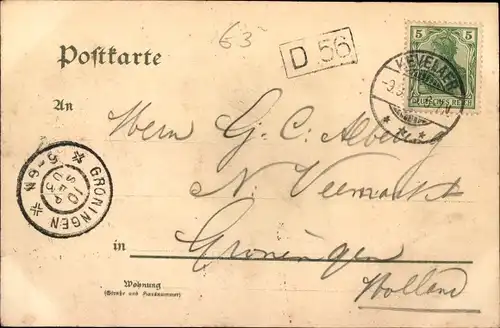 63
5 5
D 56
Postkarte
KEVELAER
DEUTSCHES REICH
An
Herrn G. C. Alberg
N. Veemarkt
GRONINGEN
10
in Groningen
Holland
Wohnung
(Straße und Hausnummer)